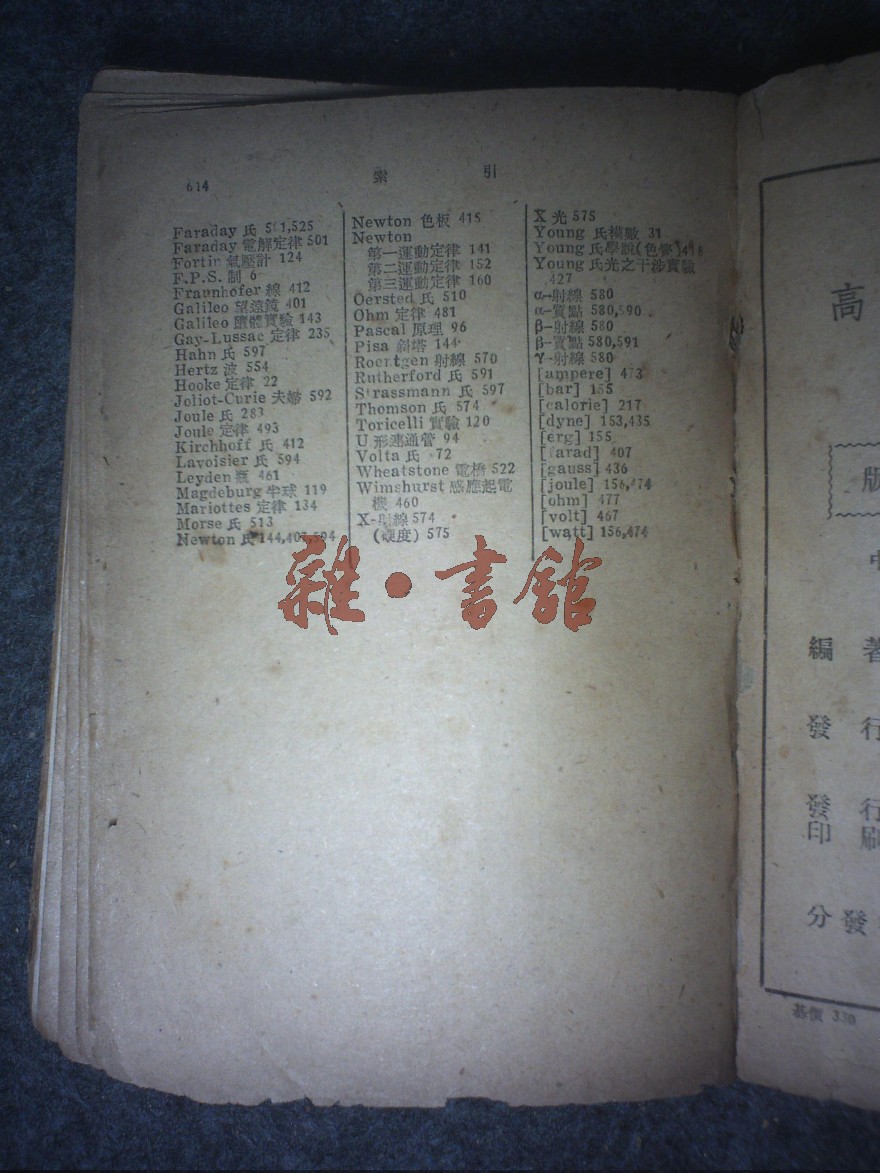 614
索 引
Faraday 氏 5 1,525
Faraday 電解定律 501
Fortin 氣壓計 124
F.P.S. 制 6
Fraunhofer 線 412
Galileo 望遠鏡 401
Galileo 墮體實驗 143
Gay-Lussac 定律 235
Hahn 氏 597
Hertz 波 554
Hooke 定律 22
Joliot-Curie 夫婦 592
Joule 氏 283
Joule 定律 493
Kirchhoff 氏 412
Lavoisier 氏 594
Leyden 瓶 461
Magdeburg 半球 119
Mariottes 定律 134
Morse 氏 513
Newton 氏 144,407,594
Newton 色板 415
Newton
第一運動定律 141
第二運動定律 152
第三運動定律 160
Oersted 氏 510
Ohm 定律 481
Pascal 原理 96
Pisa 斜塔 144
Roentgen 射線 570
Rutherford 氏 591
Strassmann 氏 597
Thomson 氏 574
Toricelli 實驗 120
U 形連通管 94
Volta 氏 72
Wheatstone 電橋 522
Wimshurst 感應起電
機 460
X-射線 574
(硬度) 575
X 光 575
Young 氏模數 31
Young 氏學說(色覺)418
Young 氏光之干涉實驗
427
α-射線 580
α-質點 580,590
β-射線 580
β-質點 580,591
γ-射線 580
[ampere] 473
[bar] 155
[calorie] 217
[dyne] 153,435
[erg] 155
[farad] 407
[gauss] 436
[joule] 156,474
[ohm] 477
[volt] 467
[watt] 156,474
雜·書館
高
版
編 著
發 行
發 行
印 刷
分 發
基價 330